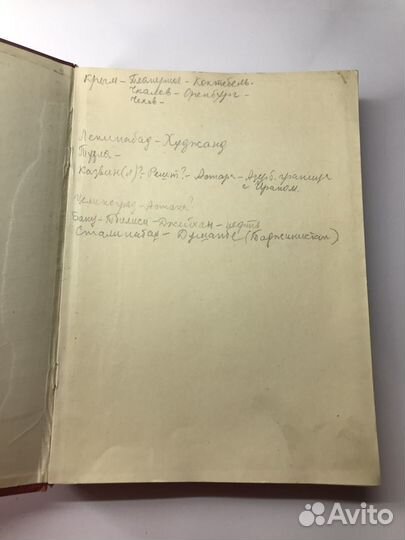 Крым - Планерное - Коктебель.
Чкалов - Оренбург -
Чехов -
Ленинабад - Худжанд
Тузла -
Казвин(л)? - Решт? - Астара - Азерб. граница
с Ираном.
Целиноград - Астана?
Баку - Тбилиси - Джейхан -
Сталинабад - Душанбе (Таджикистан)
Avito